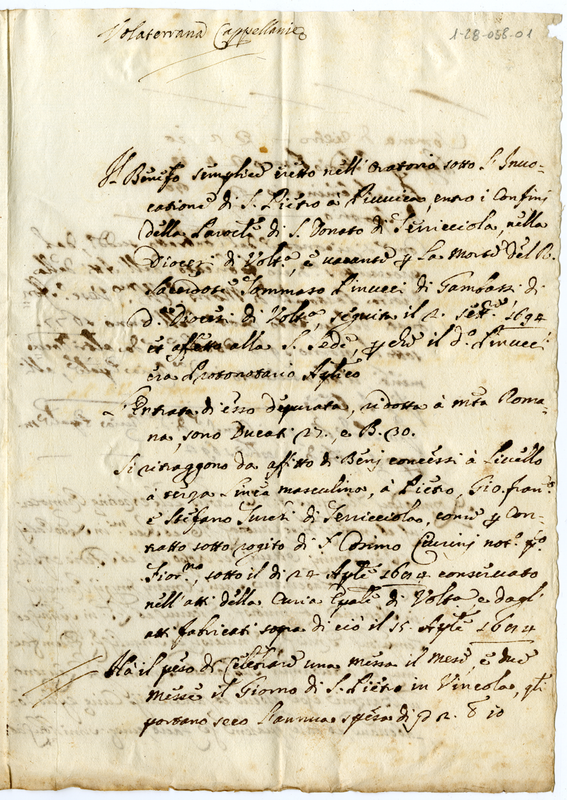 Volaterrana Cappellanie
1-28-058-01
Il Benef.o semplice eretto nell'Oratorio sotto l'Invo-
catione di S. Pietro a entro i Confini
della di S. Donato di Terricciola, nella
Diocesi di Volt.a, è vacante p la morte del R.
Sacerdote Tommaso Pinucci di Gambassi di
d.a Diocesi di Volt.a seguita il 2. 1694
et affetto alla S. Sede, p che il d.o Pinucci
era Protonotario Ap.lico
Entrata di esso depurata, ridotta à m.ta Roma-
na, sono Ducati 27. e B. 30.
Si ritraggono da affitto di Beni concessi à Livello
à terza linea masculina, à Pietro, Gio. Fran.o
e Stefano di Terricciola, come p Con-
tratto sotto rogito di S. Cosimo not.o
Fior.no, sotto il dì 24 Ap.le conservato
nell'atti della Curia Ep.ale di Volt.a e dagl'
atti fabricati sopra di ciò il 15 Ap.le
Hà il peso di celebrare una messa il mese, e due
messe il Giorno di S. Pietro in Vincola, q.li
portano seco l'annua spesa di 2. 10